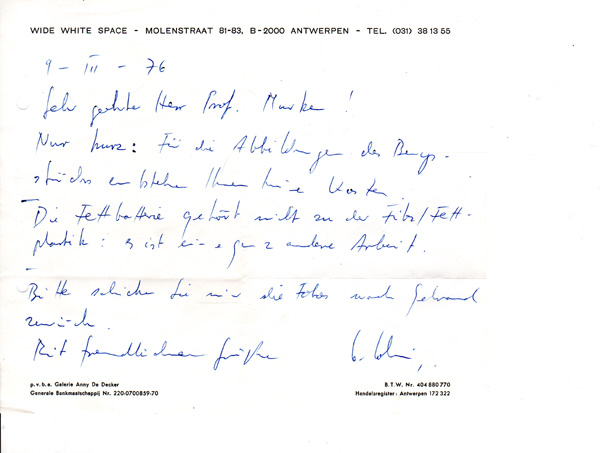 WIDE WHITE SPACE - MOLENSTRAAT 81-83, B-2000 ANTWERPEN - TEL. (031) 38 13 55
9 - III - 76
Sehr geehrter Herr Prof. !
Nur kurz: Für die Abbildungen des Beuys-
stücks entstehen Ihnen keine Kosten
Die Fettbatterie gehört nicht zu der Filz/Fett-
plastik: es ist eine ganz andere Arbeit.
Bitte schicken Sie mir die Fotos nach Gebrauch
zurück.
Mit freundlichen Grüßen
p.v.b.a. Galerie Anny De Decker
Generale Bankmaatschappij Nr. 220-0700859-70
B.T.W. Nr. 404 880 770
Handelsregister: Antwerpen 172 322